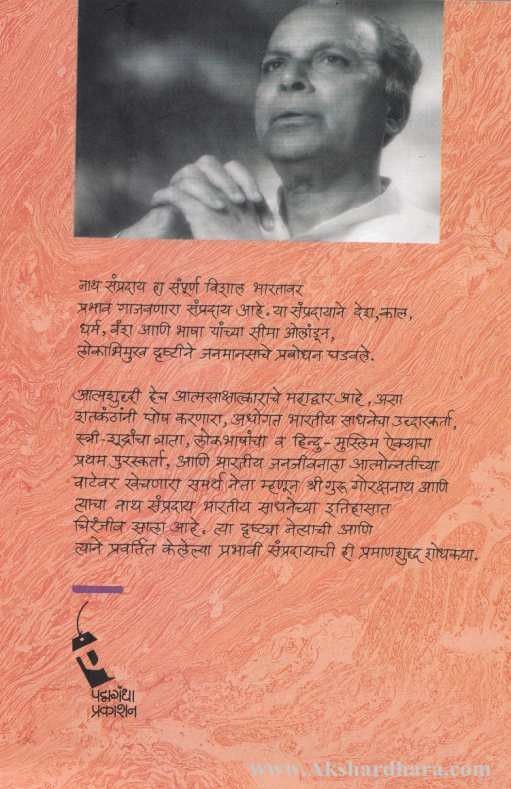 नाथ संप्रदाय हा संपूर्ण विशाल भारतावर
प्रभाव गाजवणारा संप्रदाय आहे. या संप्रदायाने देश, काल,
धर्म, वंश आणि भाषा यांच्या सीमा ओलांडून,
लोकाभिमुख दृष्टीने जनमानसाचे प्रबोधन घडवले.
आत्मशुद्धी हेच आत्मसाक्षात्काराचे महाद्वार आहे, असा
शतकंठांनी घोष करणारा, अधोगत भारतीय साधनेचा उध्दारकर्ता,
स्त्री-शूद्रांचा त्राता, लोकभाषांचा व हिन्दु-मुस्लिम ऐक्याचा
प्रथम पुरस्कर्ता, आणि भारतीय जनजीवनाला आत्मोन्नतीच्या
वाटेवर खेचणारा समर्थ नेता म्हणून श्री गुरू गोरक्षनाथ आणि
त्याचा नाथ संप्रदाय भारतीय साधनेच्या इतिहासात
चिरंजीव झाला आहे. त्या द्रष्ट्या नेत्याची आणि
त्याने प्रवर्तित केलेल्या प्रभावी संप्रदायाची ही प्रमाणशुध्द शोधकथा.
पद्मगंधा
प्रकाशन
www.Akshardhara.com